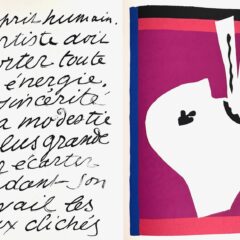 sprit humain.
artiste doit
orter toute
énergie,
sincérité
a modestie
plus grande
r écarter
ndant son
vail les
ux clichés